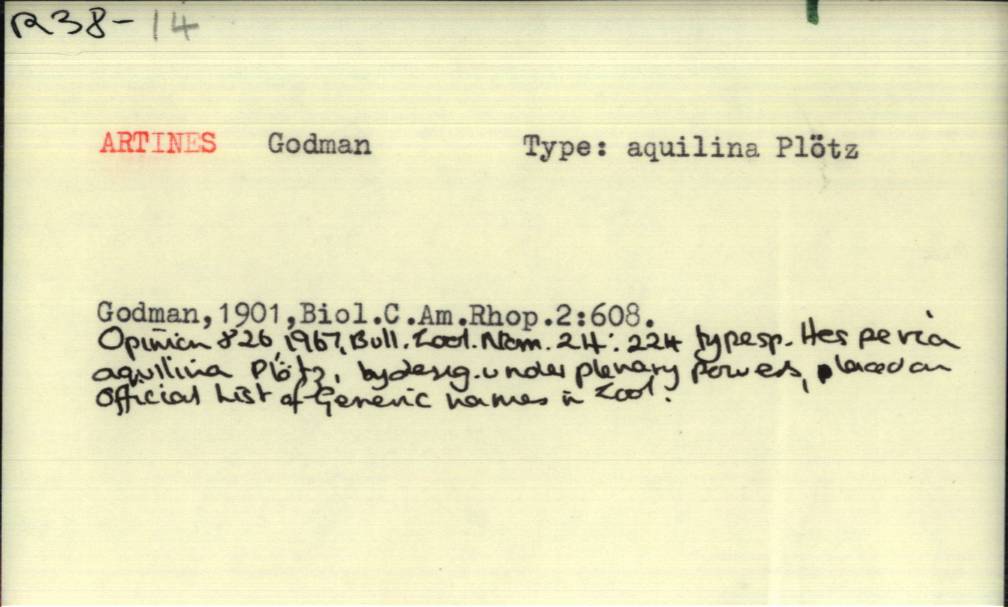 R38-14
ARTINES Godman Type: aquilina Plötz
Godman,1901,Biol.C.Am.Rhop.2:608.
Opinion 826, 1967, Bull. Zool. Nom. 24: 224 typesp. Hesperia
aquilina Plötz, by desig. under plenary powers, placed on
Official List of Generic names in Zool.